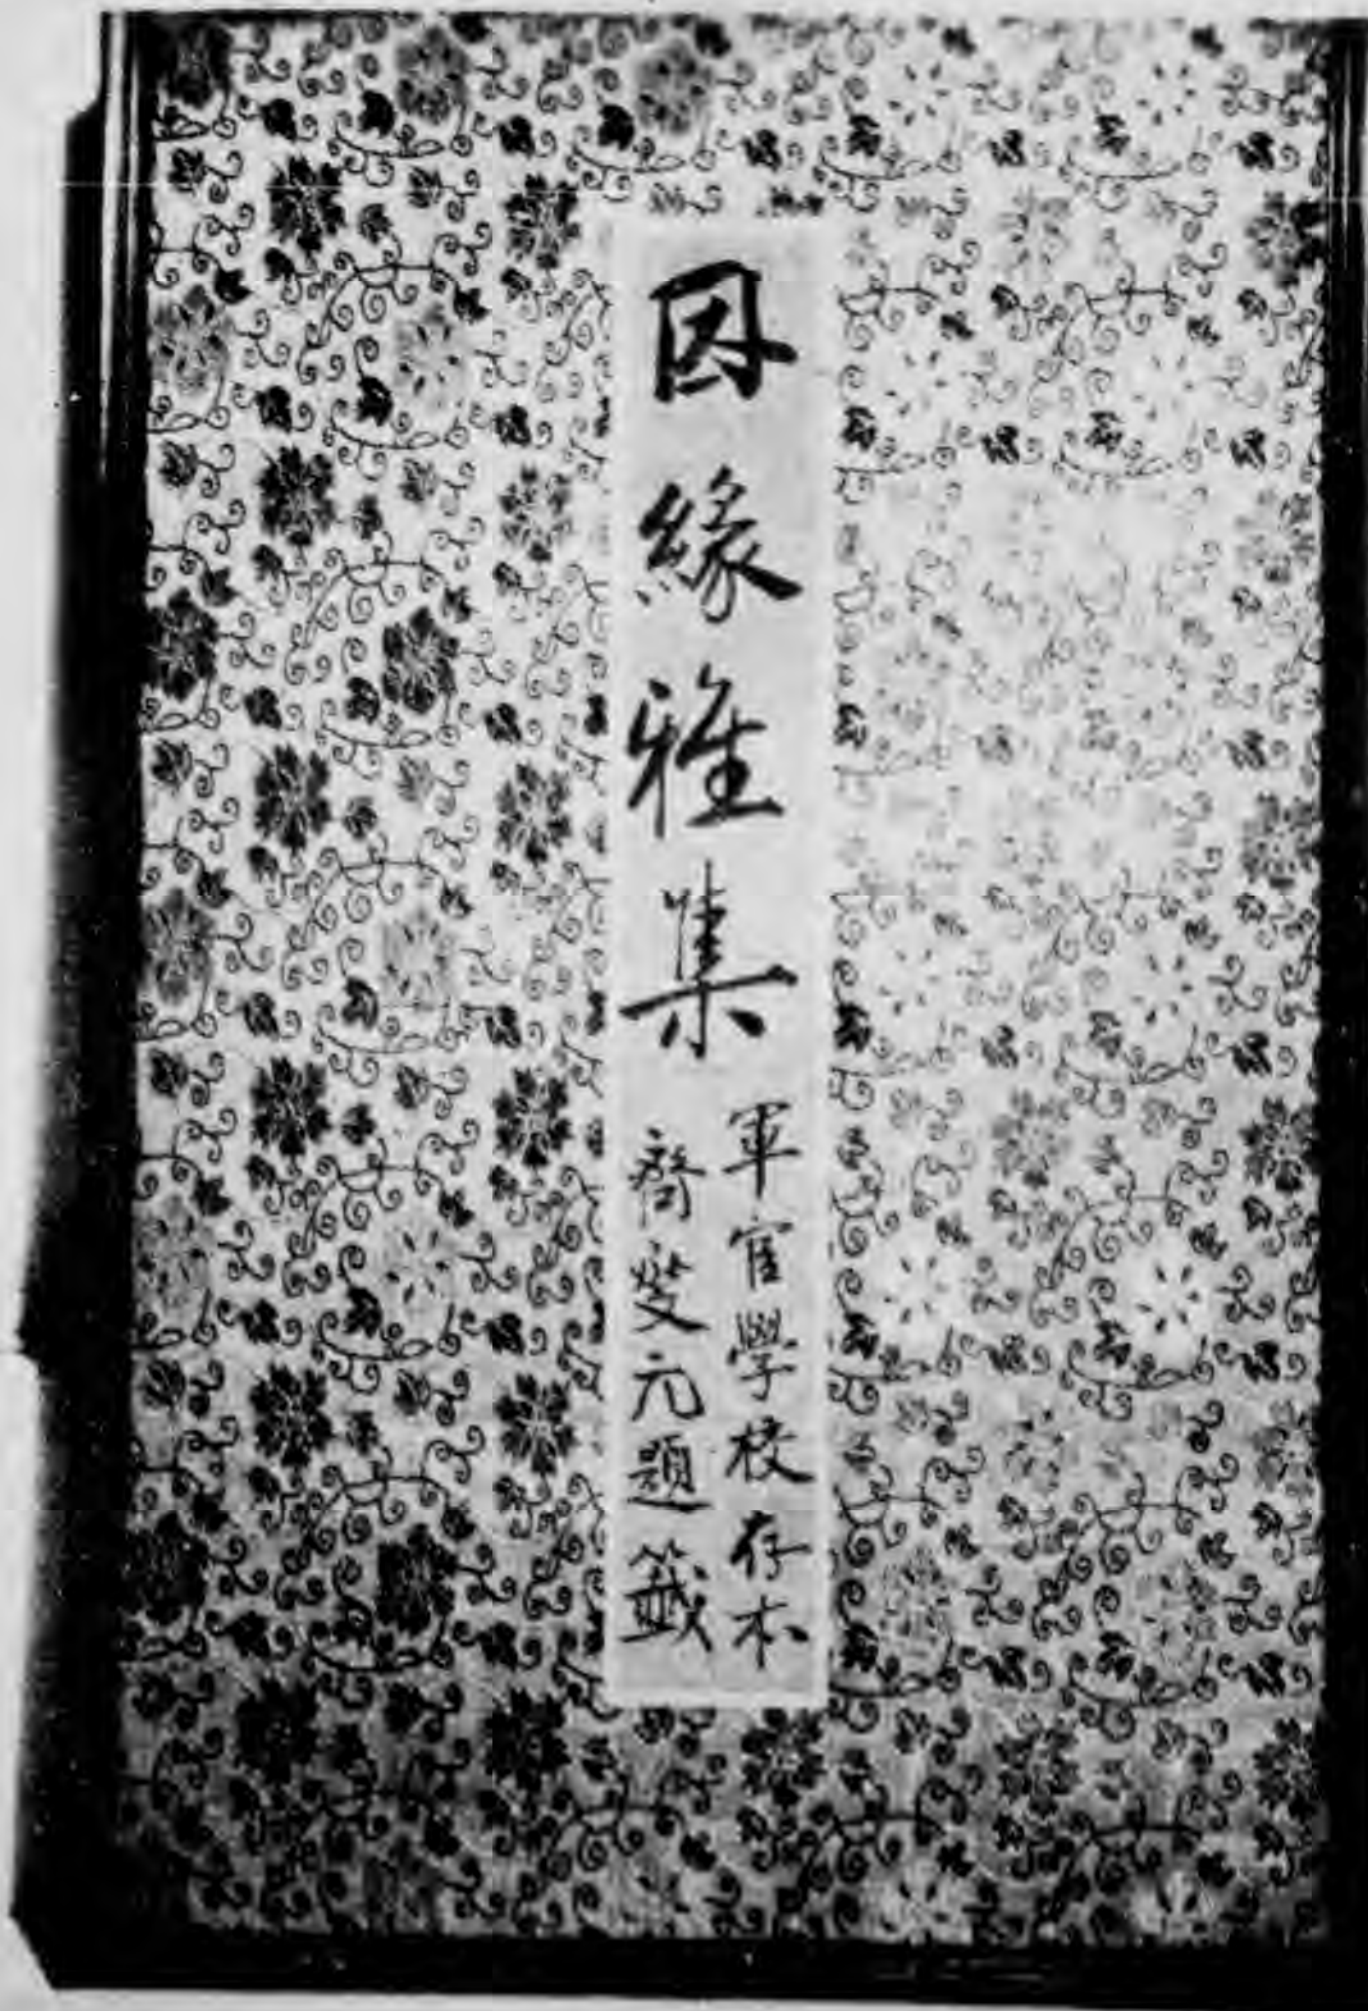 因緣雅集
軍官學校存本
齊燮元題籤